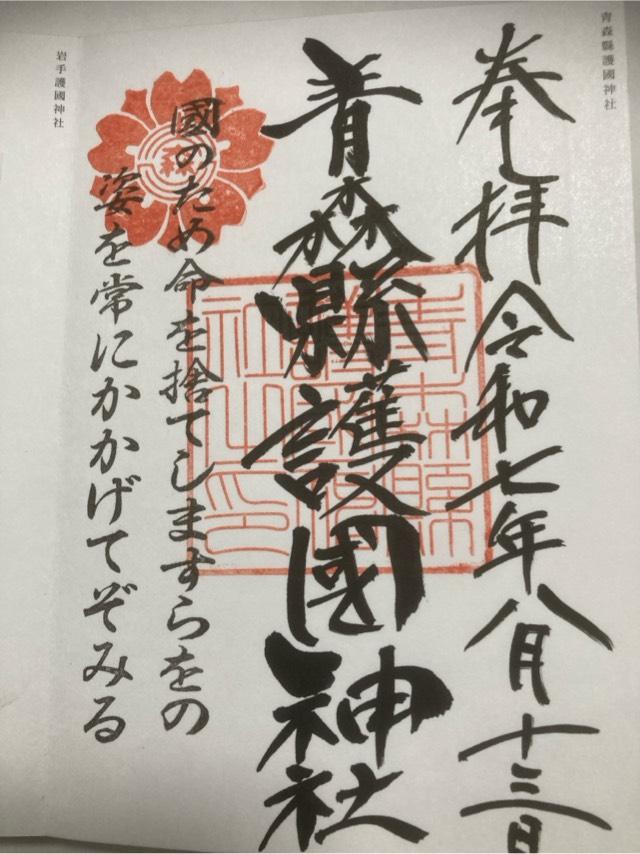 青森縣護國神社
奉拝 令和七年八月十三日
青森縣護國神社
青森縣護國神社之印
森
國のため命を捨てしますらをの
姿を常にかかげてぞみる
岩手護國神社